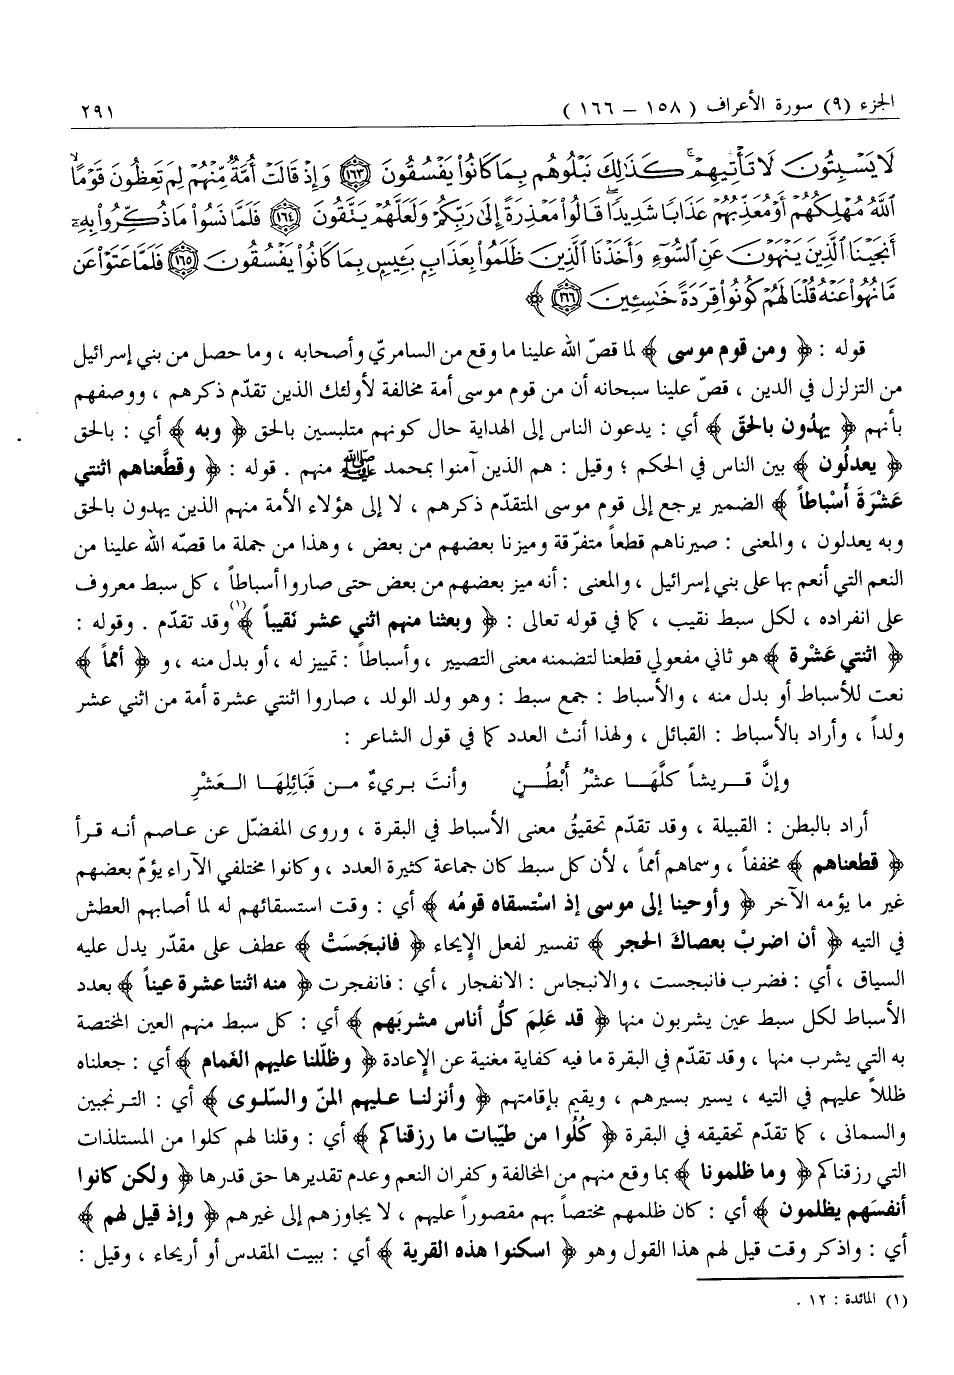 الجزء (٩) سورة الأعراف ( ١٥٨ – ١٦٦ ) ٢٩١
لَا يَسْبِتُونَ لَا تَأْتِيهِمْ ۚ كَذَٰلِكَ نَبْلُوهُم بِمَا كَانُوا۟ يَفْسُقُونَ ﴿١٦٣﴾ وَإِذْ قَالَتْ أُمَّةٌ مِّنْهُمْ لِمَ تَعِظُونَ قَوْمًا ۙ
ٱللَّهُ مُهْلِكُهُمْ أَوْ مُعَذِّبُهُمْ عَذَابًا شَدِيدًا ۖ قَالُوا۟ مَعْذِرَةً إِلَىٰ رَبِّكُمْ وَلَعَلَّهُمْ يَتَّقُونَ ﴿١٦٤﴾ فَلَمَّا نَسُوا۟ مَا ذُكِّرُوا۟ بِهِۦٓ
أَنجَيْنَا ٱلَّذِينَ يَنْهَوْنَ عَنِ ٱلسُّوٓءِ وَأَخَذْنَا ٱلَّذِينَ ظَلَمُوا۟ بِعَذَابٍۭ بَـِٔيسٍۭ بِمَا كَانُوا۟ يَفْسُقُونَ ﴿١٦٥﴾ فَلَمَّا عَتَوْا۟ عَن
مَّا نُهُوا۟ عَنْهُ قُلْنَا لَهُمْ كُونُوا۟ قِرَدَةً خَٰسِـِٔينَ ﴿١٦٦﴾ ﴾
قوله : ﴿ ومن قوم موسى ﴾ لما قصّ الله علينا ما وقع من السامريّ وأصحابه ، وما حصل من بني إسرائيل
من التزلزل في الدين ، قصّ علينا سبحانه أن من قوم موسى أمة مخالفة لأولئك الذين تقدّم ذكرهم ، ووصفهم
بأنهم ﴿ يهدُون بالحقّ ﴾ أي : يدعون الناس إلى الهداية حال كونهم متلبسين بالحق ﴿ وبه ﴾ أي : بالحق
﴿ يعدلُون ﴾ بين الناس في الحكم ؛ وقيل : هم الذين آمنوا بمحمد ﷺ منهم . قوله : ﴿ وقطَّعناهم اثنتي
عَشْرَةَ أَسْبَاطاً ﴾ الضمير يرجع إلى قوم موسى المتقدّم ذكرهم ، لا إلى هؤلاء الأمة منهم الذين يهدون بالحق
وبه يعدلون ، والمعنى : صيرناهم قطعاً متفرّقة وميزنا بعضهم من بعض ، وهذا من جملة ما قصّه الله علينا من
النعم التي أنعم بها على بني إسرائيل ، والمعنى : أنه ميز بعضهم من بعض حتى صاروا أسباطاً ، كل سبط معروف
على انفراده ، لكل سبط نقيب ، كما في قوله تعالى : ﴿ وبعثنا منهم اثني عشر نَقيباً ﴾(١) وقد تقدّم . وقوله :
﴿ اثنتي عَشْرة ﴾ هو ثاني مفعولي قطعنا لتضمنه معنى التصيير ، وأسباطاً : تمييز له ، أو بدل منه ، و ﴿ أُمماً ﴾
نعت للأسباط أو بدل منه ، والأسباط : جمع سبط : وهو ولد الولد ، صاروا اثنتي عشرة أمة من اثني عشر
ولداً ، وأراد بالأسباط : القبائل ، ولهذا أنث العدد كما في قول الشاعر :
وإنَّ قـريشاً كلَّهَـا عشْرُ أَبْطُـنٍ وأنتَ بـريءٌ مـن قَبَائِلِهَـا العَـشْرِ
أراد بالبطن : القبيلة ، وقد تقدّم تحقيقُ معنى الأسباط في البقرة ، وروى المفضّل عن عاصم أنه قرأ
﴿ قطعناهم ﴾ مخففاً ، وسماهم أمماً ، لأن كل سبط كان جماعة كثيرة العدد ، وكانوا مختلفي الآراء يؤمّ بعضهم
غير ما يؤمه الآخر ﴿ وأوحينا إلى موسى إذ استَسقاه قومُه ﴾ أي : وقت استسقائهم له لما أصابهم العطش
في التيه ﴿ أن اضربْ بعصاكَ الحجر ﴾ تفسير لفعل الإيحاء ﴿ فانبجَسَتْ ﴾ عطف على مقدّر يدل عليه
السياق ، أي : فضرب فانبجست ، والانبجاس : الانفجار ، أي : فانفجرت ﴿ منه اثنتا عشرة عيناً ﴾ بعدد
الأسباط لكل سبط عين يشربون منها ﴿ قد عَلِمَ كلُّ أناس مشربَهم ﴾ أي : كل سبط منهم العين المختصة
به التي يشرب منها ، وقد تقدّم في البقرة ما فيه كفاية مغنية عن الإعادة ﴿ وظلّلنا عليهم الغَمام ﴾ أي : جعلناه
ظللاً عليهم في التيه ، يسير بسيرهم ، ويقيم بإقامتهم ﴿ وأنزلنـا عليهم المنّ والسّلوى ﴾ أي : الترنجبين
والسمانى ، كما تقدّم تحقيقه في البقرة ﴿ كُلُوا من طيّبات ما رزقناكم ﴾ أي : وقلنا لهم كلوا من المستلذات
التي رزقناكم ﴿ وما ظلمونا ﴾ بما وقع منهم من المخالفة وكفران النعم وعدم تقديرها حق قدرها ﴿ ولكن كانوا
أنفسَهم يظلمون ﴾ أي : كان ظلمهم مختصاً بهم مقصوراً عليهم ، لا يجاوزهم إلى غيرهم ﴿ وإذ قيل لهم ﴾
أي : واذكر وقت قيل لهم هذا القول وهو ﴿ اسكنوا هذه القرية ﴾ أي : ببيت المقدس أو أريحاء ، وقيل :
(١) المائدة : ١٢ .